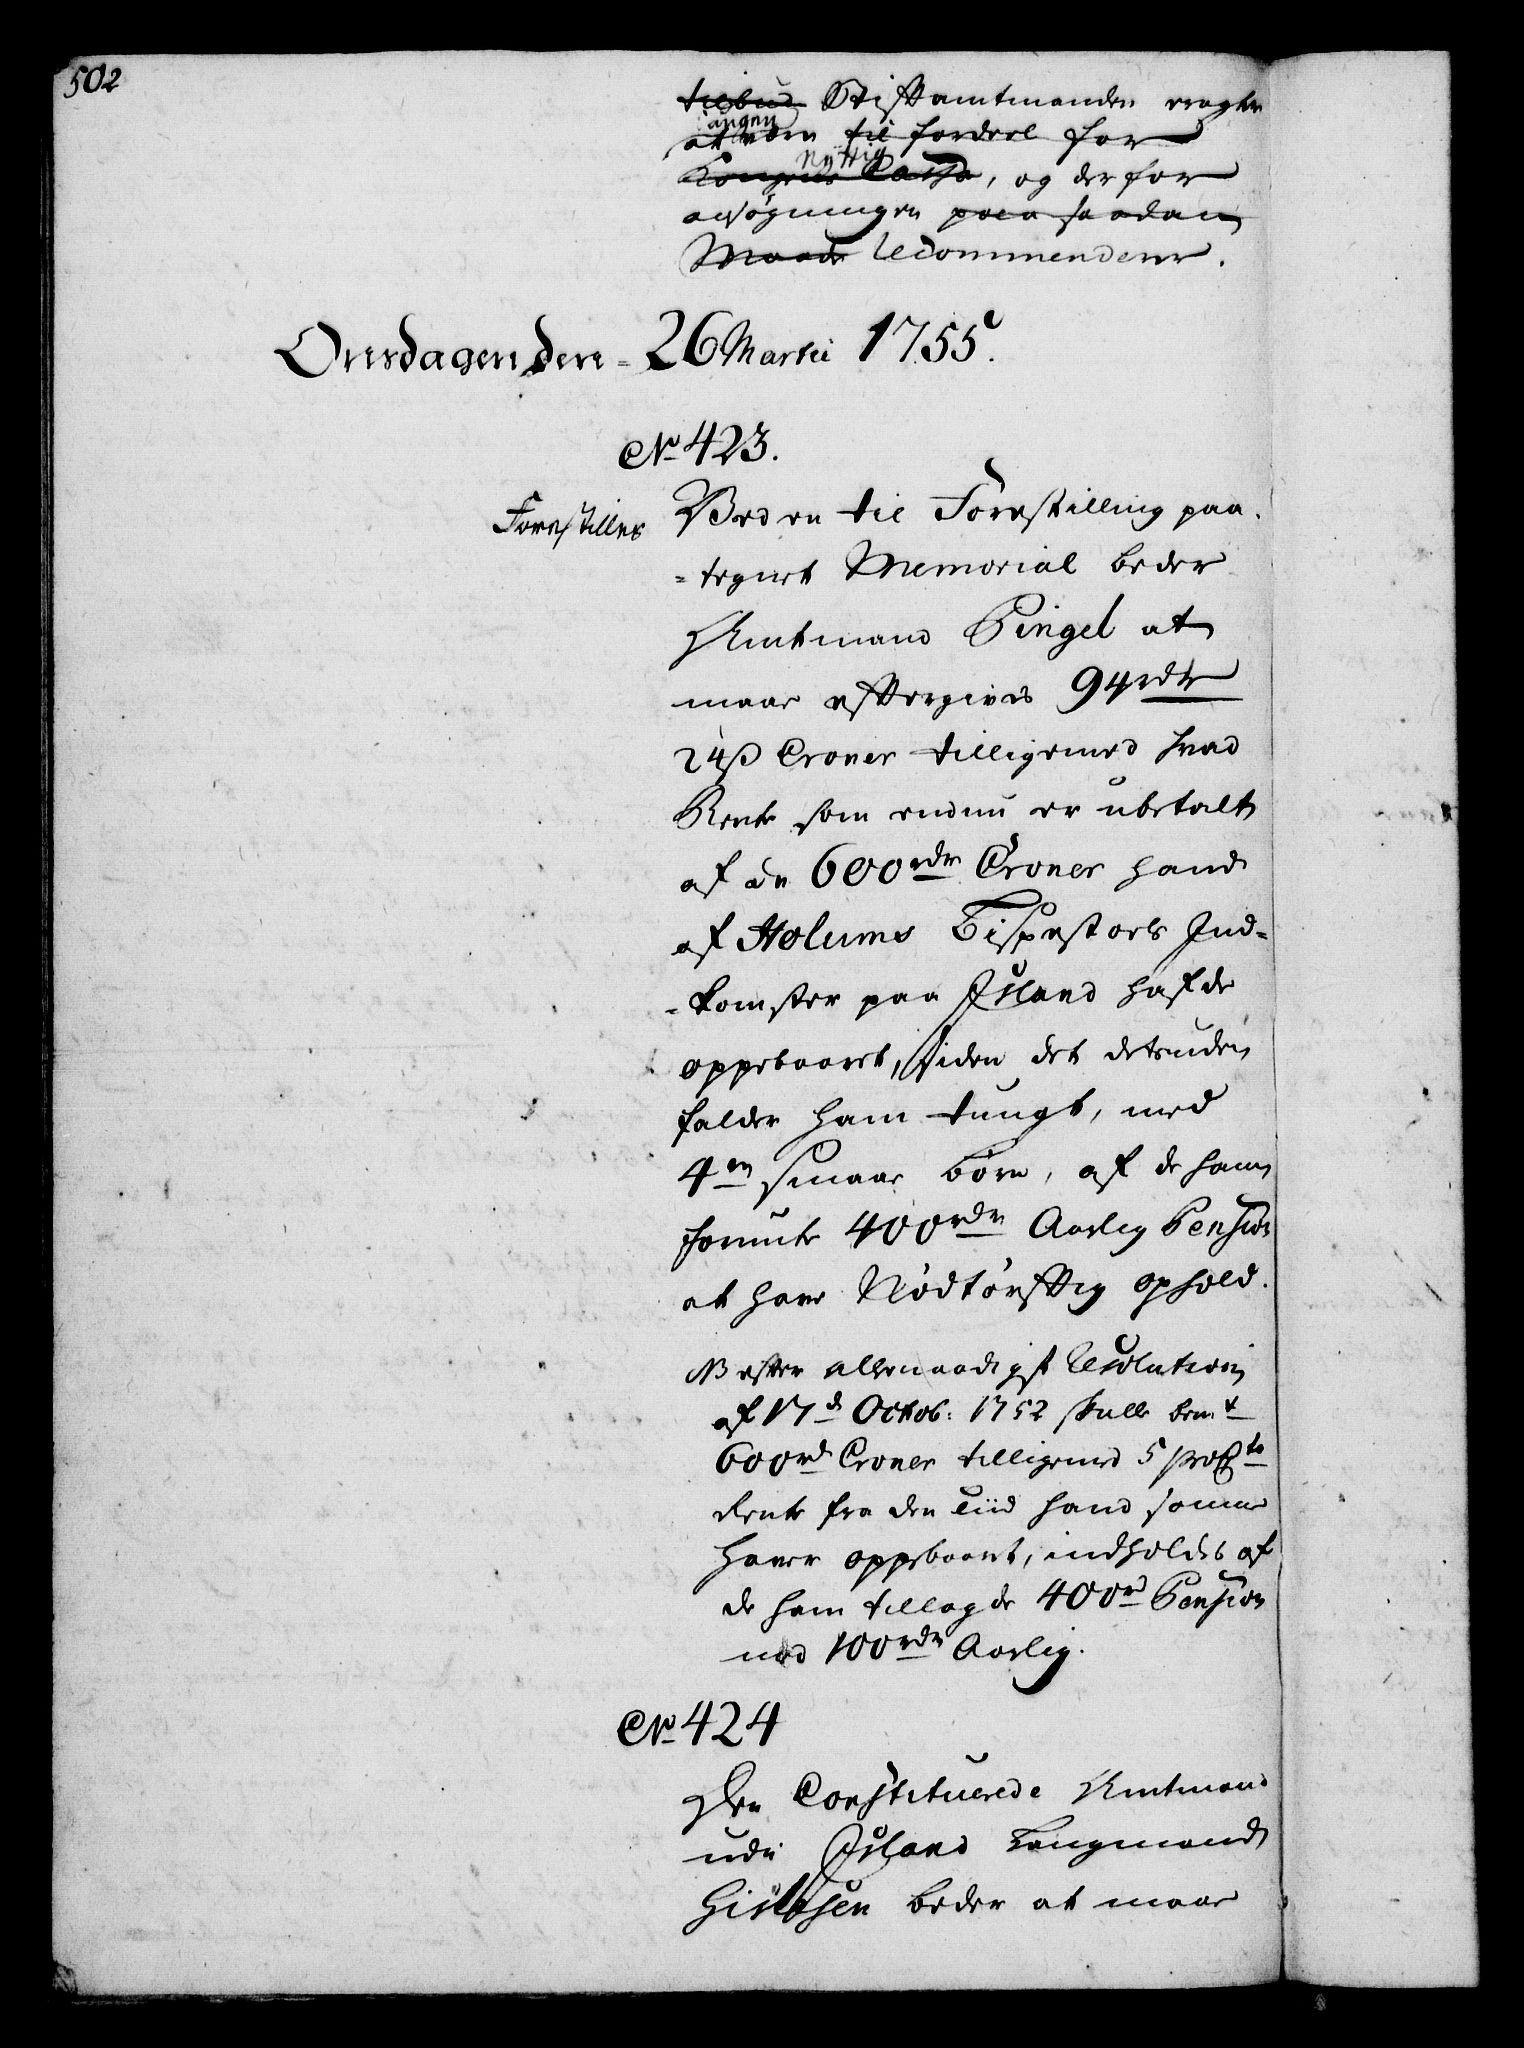 502
tilbud Stiftamtmanden eragter
angen
at være til fordeel for
nyttig
Kongens Cassa, og derfor
ansøgningen paa saadan
Maade Recommenderer.
Onsdagen den 26 Martii 1755.
No 423.
Forestilles
Ved en til Forestilling paa-
-tegnet Memorial beder
Amtmand Pingel at
maae eftergives 94 rdr
24 ß Croner tilligemed hvad
Rente som endnu er ubetalt
af de 600 rdr Croner hand
af Holums Bispestoels Ind-
-komster paa Island hafde
oppebaaret, siden det desuden
falder ham tungt, med
4re smaae børn, af de ham
forundte 400 rdr Aarlig Pension
at have Nødtørftig ophold.
NB efter allernaadigst Resolution
af 17d Octob: 1752 skulle bemte
600 rd Croner tilligemed 5 proCto
Rente fra den Tiid hand samme
haver oppebaaret, indholdes af
de ham tillagde 400 rd Pension
med 100 rdr Aarlig.
No 424
Den Constituerede Amtmand
udi Island Laugmand
Gislesen beder at maae